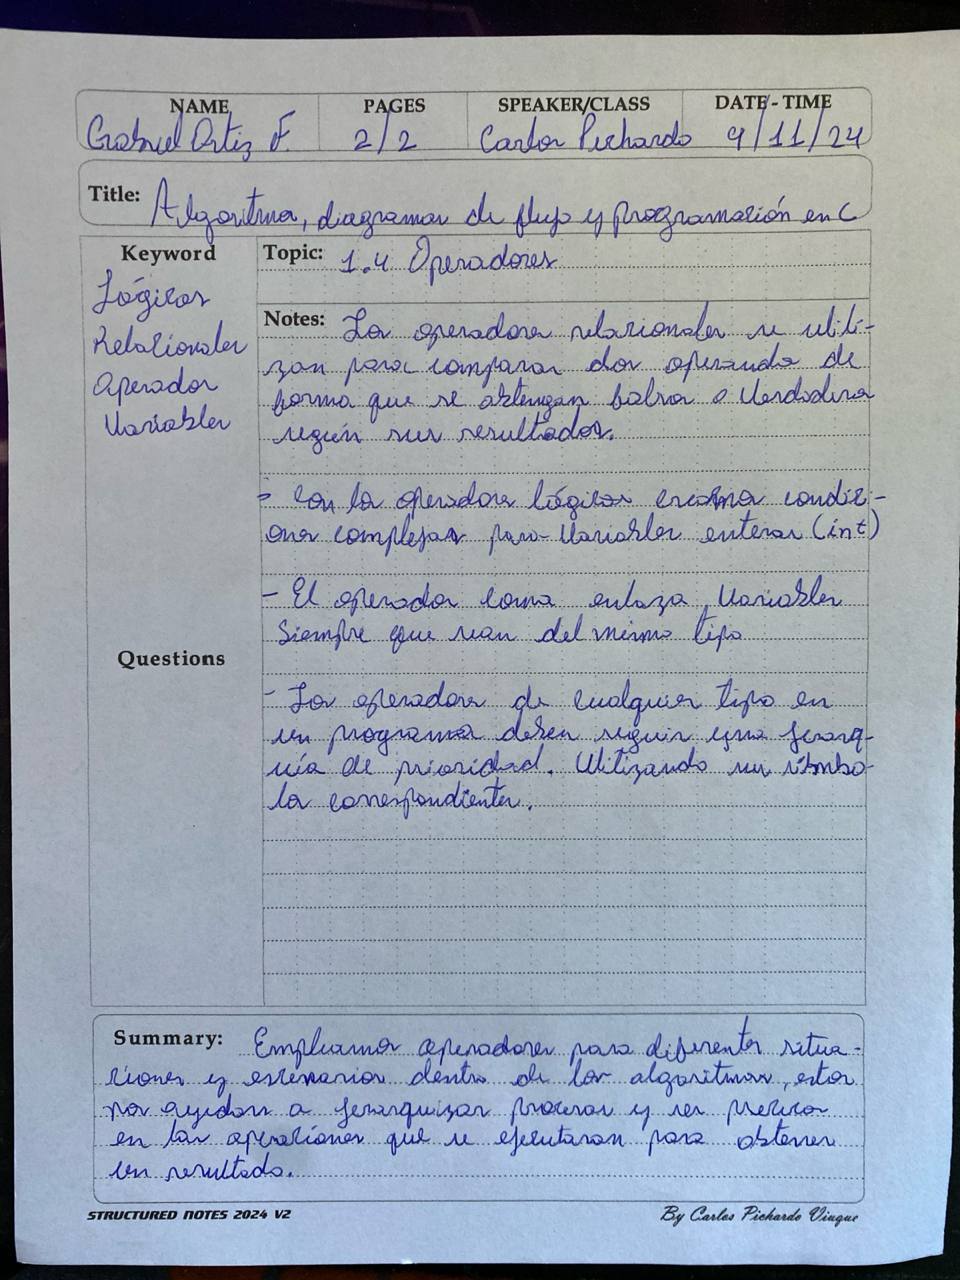 NAME PAGES SPEAKER/CLASS DATE-TIME
Gabriel Ortiz F. 2/2 Carlos Pichardo 9/11/24
Title: Algoritmos, diagramas de flujo y programación en C
Keyword
Lógicos
Relacionales
Operador
Variables
Questions
Topic: 1.4 Operadores
Notes: Los operadores relacionales se utili-
zan para comparar dos operando de
forma que se obtengan falso o Verdadera
según sus resultados.
- Con los operadores lógicos condici-
ones complejas para Variables enteras (int)
- El operador coma enlaza Variables
Siempre que sean del mismo tipo
- Los operadores de cualquier tipo en
un programa deben seguir una jerarq-
uía de prioridad. Utilizando su símbo-
lo correspondientes.
Summary: Empleamos operadores para diferentes situa-
ciones y escenarios dentro de los algoritmos, estos
nos ayudan a jerarquizar procesos y ser precisos
en las operaciones que se ejecutaran para obtener
un resultado.
STRUCTURED NOTES 2024 V2
By Carlos Pichardo Viuque